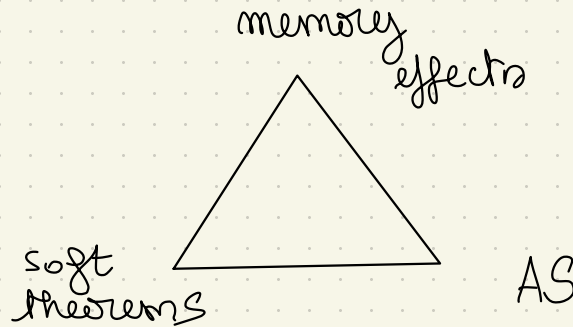 memory
effects
soft
theorems
AS